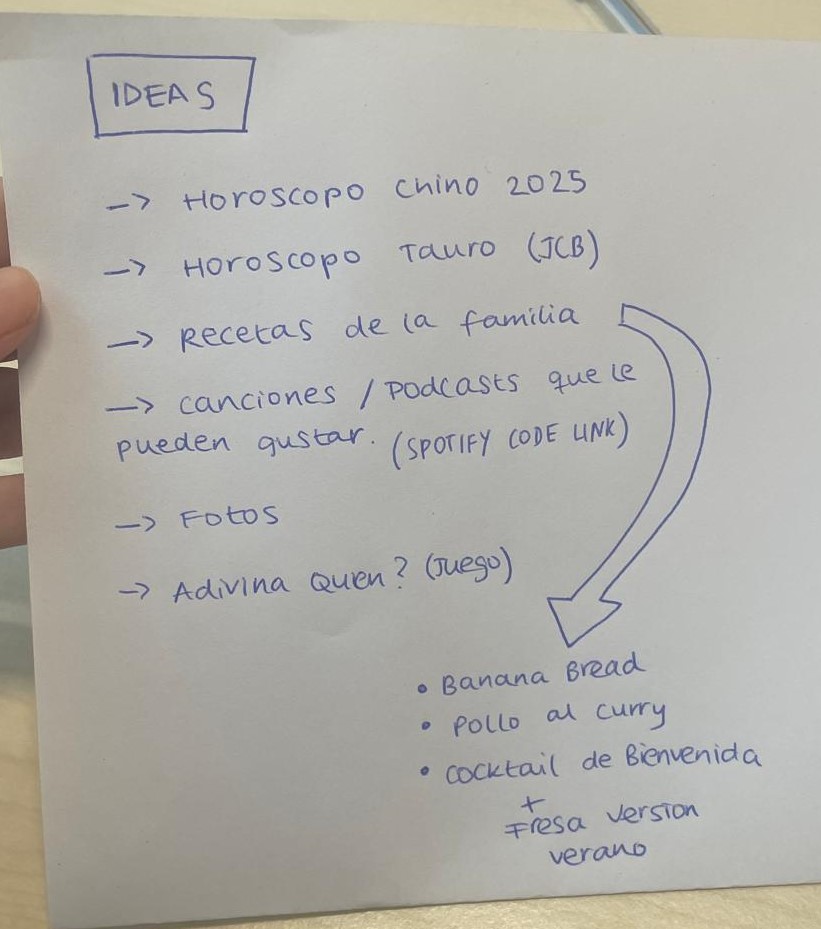 IDEAS
-> Horoscopo Chino 2025
-> Horoscopo Tauro (JCB)
-> Recetas de la familia
-> Canciones / Podcasts que le
pueden gustar. (SPOTIFY CODE LINK)
-> Fotos
-> Adivina Quien? (Juego)
• Banana Bread
• Pollo al curry
• Cocktail de Bienvenida
+
Fresa version
verano